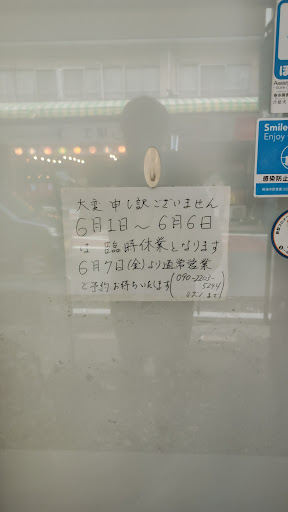 大変申し訳ございません
6月1日～6月6日
は臨時休業となります
6月7日(金)より通常営業
ご予約お待ちいたします(090-2203-
5294
Smile
Enjoy
感染防止